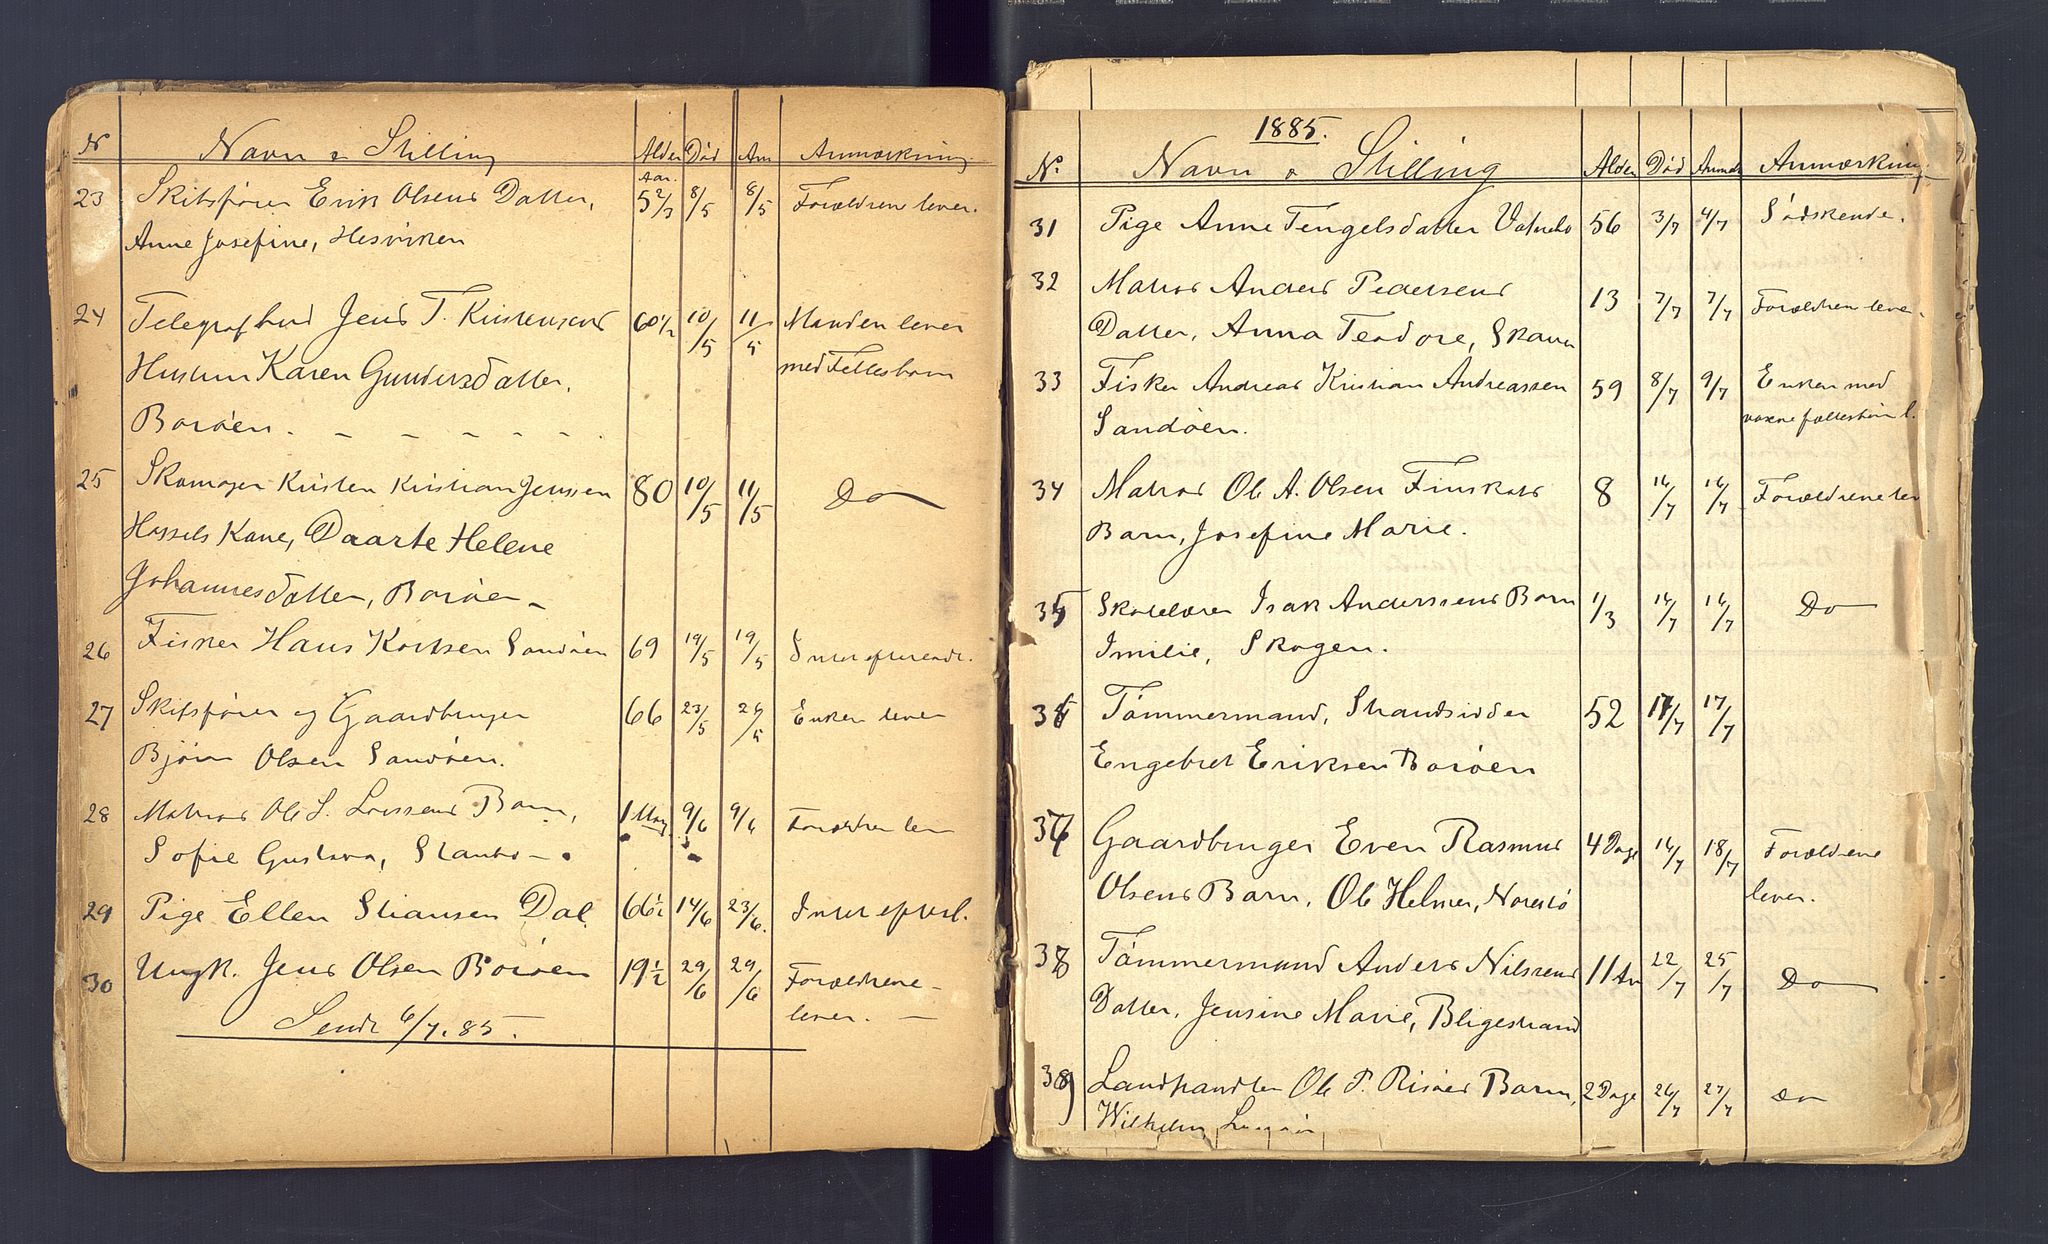 N Navn & Stilling Alder Død An Anmærkning
23 Skibsfører Erik Olsens Datter, Aar. 5 2/3 8/5 8/5 Forældrene lever.
Anne Josefine, Hesviken
24 Telegrafbud Jens T. Kristensens 60 1/2 10/5 11/5 Manden lever
Hustru Karen Gundersdatter, med Fellesbørn
Borøen. - - - - - -
25 Skomager Kristen Kristian Jenssen 80 10/5 11/5 Do
Hassels Kone, Daarte Helene
Johannesdatter, Borøen -
26 Fisker Hans Sandøen 69 19/5 19/5
27 Skibsfører og Gaardbruger 66 23/5 26/5 Enken lever
Bjørn Olsen Sandøen.
28 Matros Ole S. Barn, 1 9/6 9/6
Sofie Gustava,
29 Pige Ellen Dal 66 1/2 14/6 23/6.
30 Ungk. Jens Olsen Borøen 19 1/2 29/6 29/6 Forældrene -
lever. -
Sendt 6/7. 85.
1885.
No Navn & Stilling Alder Død Anm Anmærkning.
31 Pige Anne Tengelsdatter 56 3/7 4/7 Sødskende.
32 Matros Anders Pedersens 13 7/7 7/7 Forældrene lever.
Datter, Anna Teodore,
33 Fisker Andreas Kristian Andreassen 59 8/7 9/7 Enken med
Sandøen. voxne fællesbørn l.
34 Matros Ole A. Olsen 8 16/7 16/7 Forældrene lev
Barn, Josefine Marie.
35 Skolelærer Isak Anderssens Barn 1/3 16/7 16/7 Do
Imilie, Skogen.
36 Tømmermand, Strandsidder 52 17/7 17/7
Engebret Eriksen Borøen
37 Gaardbruger Even Rasmus 4 Dage 16/7 18/7 Forældrene
Olsens Barn, Ole Helmer, lever.
38 Tømmermand Anders Nilsens 11 Aar 22/7 25/7 Do
Datter, Jensine Marie, Bligestrand
39 Landhandler Ole P. Risøes Barn, 2 Dage 26/7 27/7 Do
Wilhelm